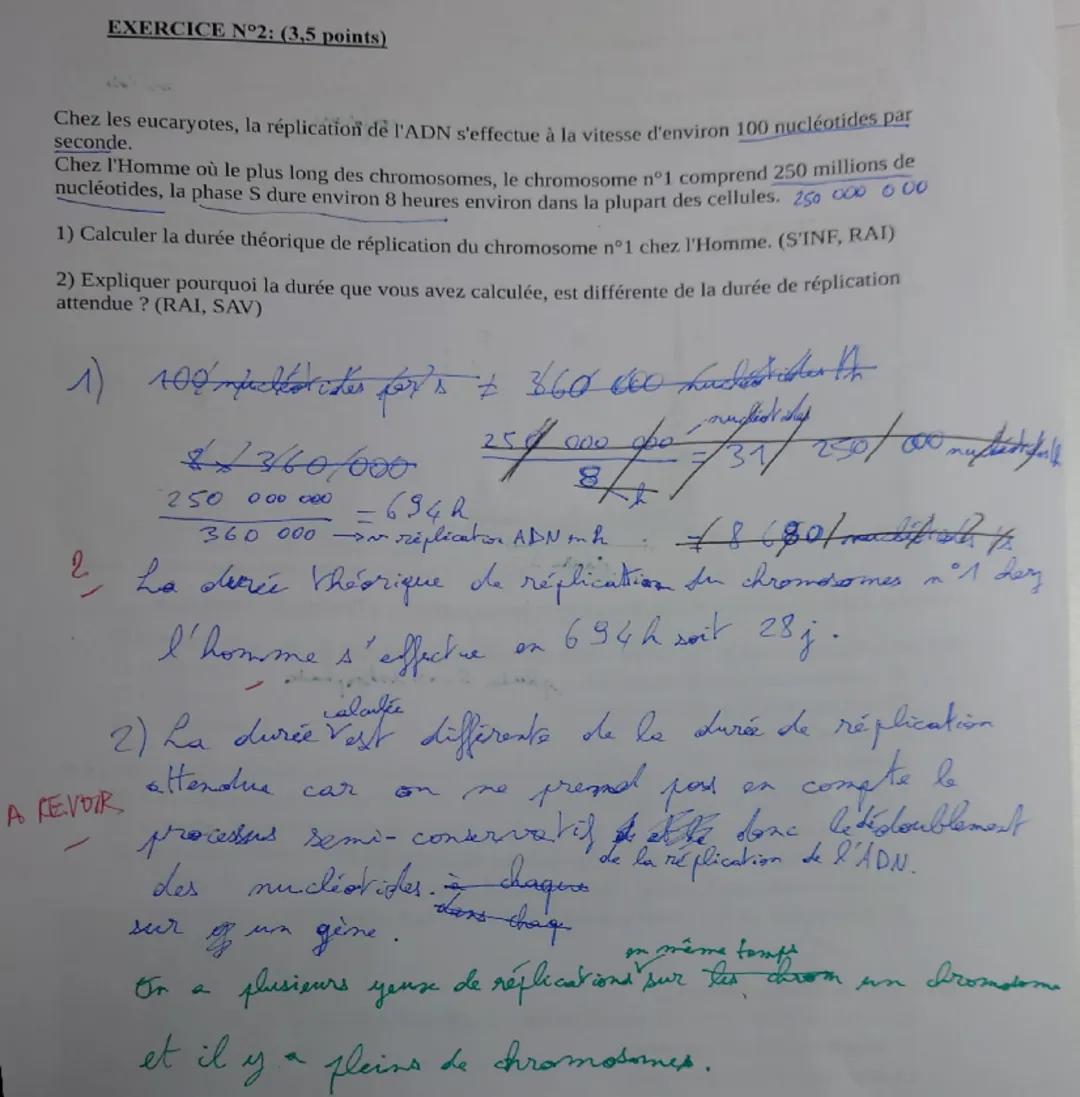 EXERCICE N°2: (3,5 points)
Chez les eucaryotes, la réplication de l'ADN s'effectue à la vitesse d'environ 100 nucléotides par
seconde.
Chez l'Homme où le plus long des chromosomes, le chromosome n°1 comprend 250 millions de
nucléotides, la phase S dure environ 8 heures environ dans la plupart des cellules. 250 000 000
1) Calculer la durée théorique de réplication du chromosome n°1 chez l'Homme. (S'INF, RAI)
2) Expliquer pourquoi la durée que vous avez calculée, est différente de la durée de réplication
attendue ? (RAI, SAV)
1) 100 nucléotides par s = 360 000 nucléotides/h
8 x 360 000
250 000 000 nucléotides
8 h
= 31 250 000 nucléotides/h
250 000 000
= 694 h
360 000 → réplication ADN en h
= 8 680
2
La durée théorique de réplication du chromosomes n°1 chez
l'homme s'effectue en 694 h soit 28 j.
calculée
2) La durée est différente de la durée de réplication
attendue car on ne prend pas en compte le
A REVOIR
processus semi-conservatif donc le dédoublement
de la réplication de l'ADN.
des nucléotides. à chaque
dans chaq
sur un gène.
en même temps
On a plusieurs yeux de réplications sur les chrom un chromosome
et il y a pleins de chromosomes.